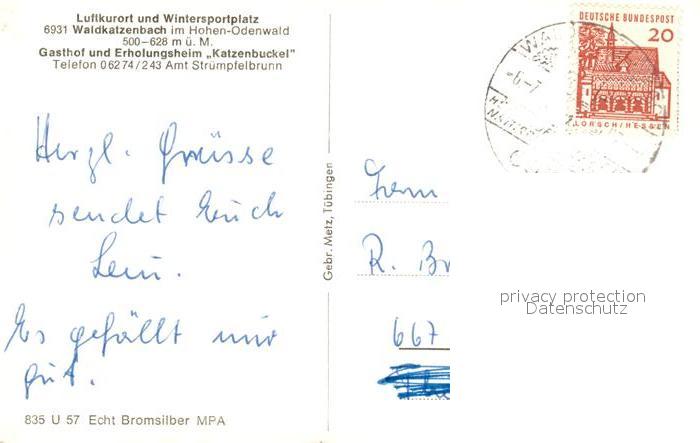 Luftkurort und Wintersportplatz
6931 Waldkatzenbach im Hohen-Odenwald
500–628 m ü. M.
Gasthof und Erholungsheim „Katzenbuckel"
Telefon 06274/243 Amt Strümpfelbrunn
DEUTSCHE BUNDESPOST
20
LORSCH/HESSEN
Herzl. Grüsse
sendet Euch
Es gefällt mir
gut.
Gebr. Metz, Tübingen
R. Br
667
privacy protection
Datenschutz
835 U 57 Echt Bromsilber MPA